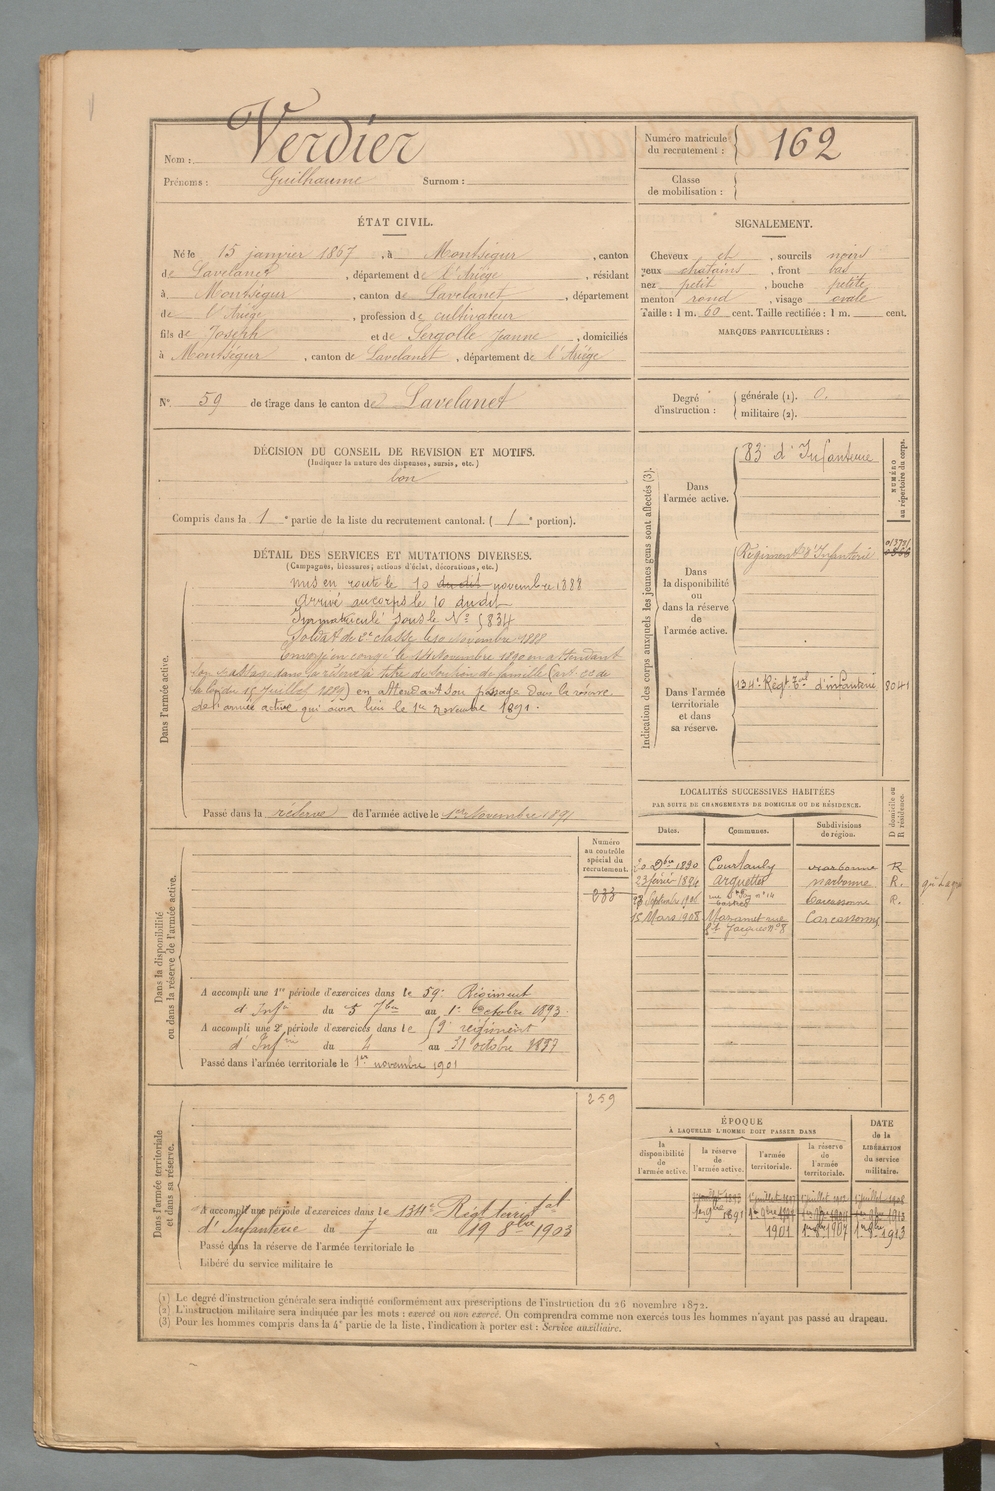 Nom : Verdier
Prénoms : Guilhaume Surnom :
Numéro matricule du recrutement : 162
Classe de mobilisation :
ÉTAT CIVIL.
Né le 15 janvier 1867, à Montségur, canton
de Lavelanet, département de l'Ariège, résidant
à Montségur, canton de Lavelanet, département
de l'Ariège, profession de cultivateur
fils de Joseph et de Sergolle Jeanne, domiciliés
à Montségur, canton de Lavelanet, département de l'Ariège
SIGNALEMENT.
Cheveux et, sourcils noirs
yeux chatains, front bas
nez petit, bouche petite
menton rond, visage ovale
Taille : 1 m. 60 cent. Taille rectifiée : 1 m. cent.
MARQUES PARTICULIÈRES :
N° 59 de tirage dans le canton de Lavelanet
Degré d'instruction : générale (1). 0.
militaire (2).
DÉCISION DU CONSEIL DE REVISION ET MOTIFS.
(Indiquer la nature des dispenses, sursis, etc.)
bon
Compris dans la 1e partie de la liste du recrutement cantonal. (1e portion).
DÉTAIL DES SERVICES ET MUTATIONS DIVERSES.
(Campagnes, blessures, actions d'éclat, décorations, etc.)
Dans l'armée active.
Mis en route le 10 du dit novembre 1888
Arrivé au corps le 10 du dit
Immatriculé sous le N° 5834
Soldat de 2e classe le 10 Novembre 1888
Envoyé en congé le 14 Novembre 1890 en attendant
son passage dans la réserve à titre de soutien de famille (art.
la loi du 15 Juillet 1889) en attendant son passage dans la réserve
de l'armée active qui aura lieu le 1er Novembre 1891.
Passé dans la réserve de l'armée active le 1er Novembre 1891
Indication des corps auxquels les jeunes gens sont affectés (3).
NUMÉRO au répertoire du corps.
Dans l'armée active.
83 d'Infanterie
Dans la disponibilité ou dans la réserve de l'armée active.
Régiment d'Infanterie
Dans l'armée territoriale et dans sa réserve.
134e Régt Tal d'infanterie 8041
LOCALITÉS SUCCESSIVES HABITÉES
PAR SUITE DE CHANGEMENTS DE DOMICILE OU DE RÉSIDENCE.
Dates. Communes. Subdivisions de région. D domicile ou R résidence.
20 9bre 1890 Courtauly Narbonne R
23 février 1894 Arquettes Narbonne R.
Septembre 1901 rue n° 14 Castres Carcassonne R.
15 Mars 1908 Mazamet rue St Jacques n° 8 Carcassonne
Dans la disponibilité ou dans la réserve de l'armée active.
Numéro au contrôle spécial du recrutement.
233
A accompli une 1re période d'exercices dans le 59e Régiment
d'Infie du 5 7bre au 1er Octobre 1893.
A accompli une 2e période d'exercices dans le régiment
d'Infrie du 4 au 31 octobre 1897
Passé dans l'armée territoriale le 1er novembre 1901
Dans l'armée territoriale et dans sa réserve.
259
A accompli une période d'exercices dans le 134e Régt territal
d'Infanterie du 7 au 19 8bre 1903
Passé dans la réserve de l'armée territoriale le
Libéré du service militaire le
ÉPOQUE
À LAQUELLE L'HOMME DOIT PASSER DANS
la disponibilité de l'armée active.
la réserve de l'armée active.
l'armée territoriale.
la réserve de l'armée territoriale.
DATE de la LIBÉRATION du service militaire.
1er 9bre 1891
1901
1907
1913
(1) Le degré d'instruction générale sera indiqué conformément aux prescriptions de l'instruction du 26 novembre 1872.
(2) L'instruction militaire sera indiquée par les mots : exercé ou non exercé. On comprendra comme non exercés tous les hommes n'ayant pas passé au drapeau.
(3) Pour les hommes compris dans la 4e partie de la liste, l'indication à porter est : Service auxiliaire.